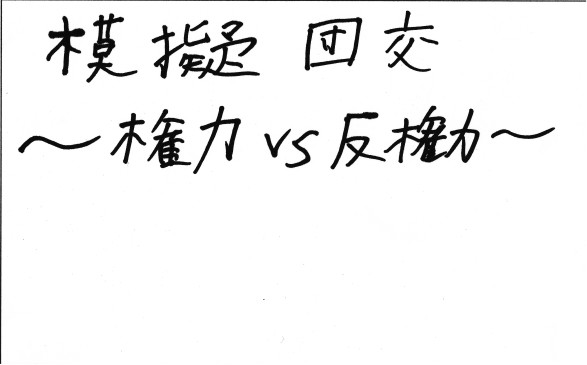 模擬団交
〜権力vs反権力〜